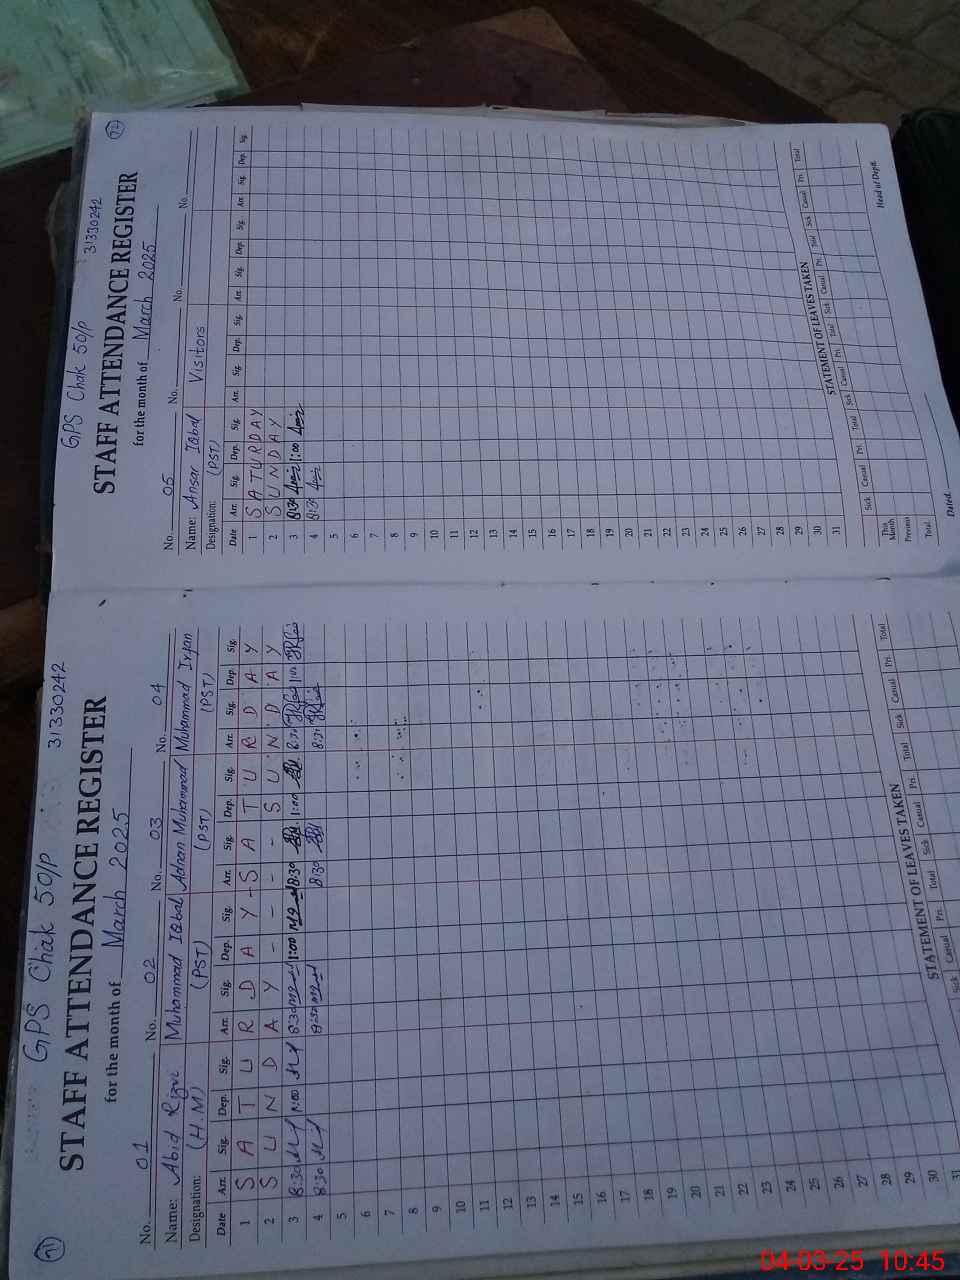 71
GPS Chak 50/P 31330242
STAFF ATTENDANCE REGISTER
for the month of March 2025
No. 01 No. 02 No. 03 No. 04
Name: Abid Rizvi Muhammad Iqbal Adnan Muhammad Muhammad Irfan
Designation: (H.M) (PST) (PST) (PST)
Date Arr. Sig. Dep. Sig. Arr. Sig. Dep. Sig. Arr. Sig. Dep. Sig. Arr. Sig. Dep. Sig.
1 S A T U R D A Y - S A T U R D A Y
2 S U N D A Y - - - - S U N D A Y
3 8:30 1:00 8:30 1:00 8:30 1:00 8:30
4 8:30 8:30 8:30 8:30
5
6
7
8
9
10
11
12
13
14
15
16
17
18
19
20
21
22
23
24
25
26
27
28
29
30
31
STATEMENT OF LEAVES TAKEN
Sick Casual Pri. Total Sick Casual Pri. Total Sick Casual Pri. Total
72
GPS Chak 50/P 31330242
STAFF ATTENDANCE REGISTER
for the month of March 2025
No. 05 No. No. No.
Name: Ansar Iqbal Visitors
Designation: (PST)
Date Arr. Sig. Dep. Sig. Arr. Sig. Dep. Sig. Arr. Sig. Dep. Sig. Arr. Sig. Dep. Sig.
1 S A T U R D A Y
2 S U N D A Y
3 8:30 1:00
4 8:30
5
6
7
8
9
10
11
12
13
14
15
16
17
18
19
20
21
22
23
24
25
26
27
28
29
30
31
STATEMENT OF LEAVES TAKEN
Sick Casual Pri. Total Sick Casual Pri. Total Sick Casual Pri. Total Sick Casual Pri. Total
This Month
Previous
Total
Dated. Head of Deptt.
04-03-25 10:45